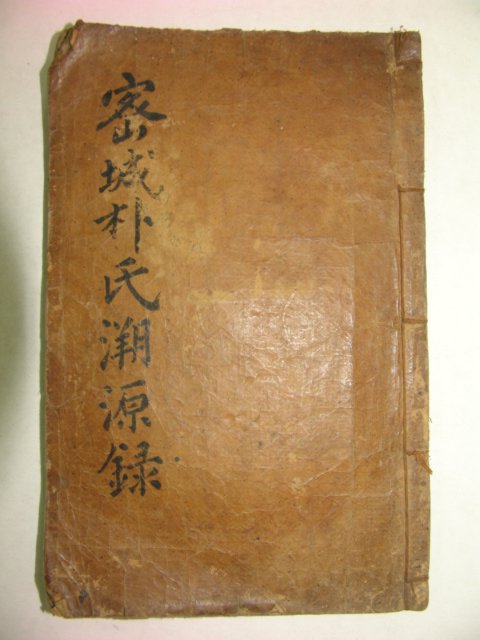 密城朴氏溯源錄